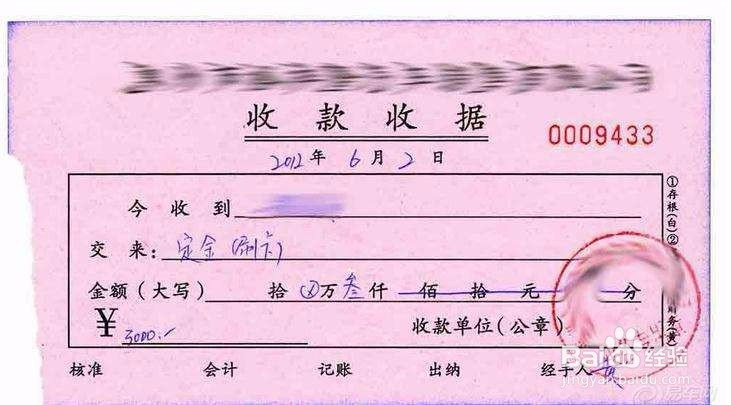 收款收据
0009433
2012年6月2日
今收到
交来：定金(刷卡)
金额(大写) 拾⊗万叁仟佰拾元分
¥3000.- 收款单位(公章)
核准 会计 记账 出纳 经手人
①存根(白)②
财务(黄)
Baidu经验
jingyan.baidu.com
易车网